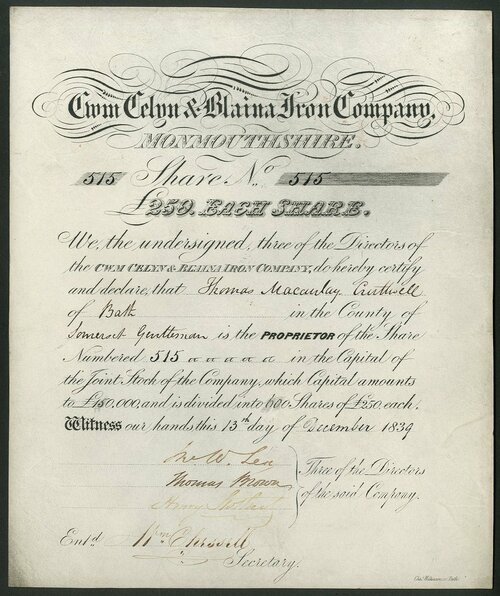 Cwm Celyn & Blaina Iron Company,
MONMOUTHSHIRE.
515 Share No. 515
£250. EACH SHARE.
We, the undersigned, three of the Directors of
the CWM CELYN & BLAINA IRON COMPANY, do hereby certify
and declare, that Thomas Macaulay Cruttwell
of Bath in the County of
Somerset Gentleman is the PROPRIETOR of the Share
Numbered 515 in the Capital of
the Joint Stock of the Company, which Capital amounts
to £150,000, and is divided into 600 Shares of £250, each.
Witness our hands this 13th day of December 1839
Jno W. Lea
Thomas Brown
Three of the Directors
of the said Company.
Entd. Wm
Secretary.